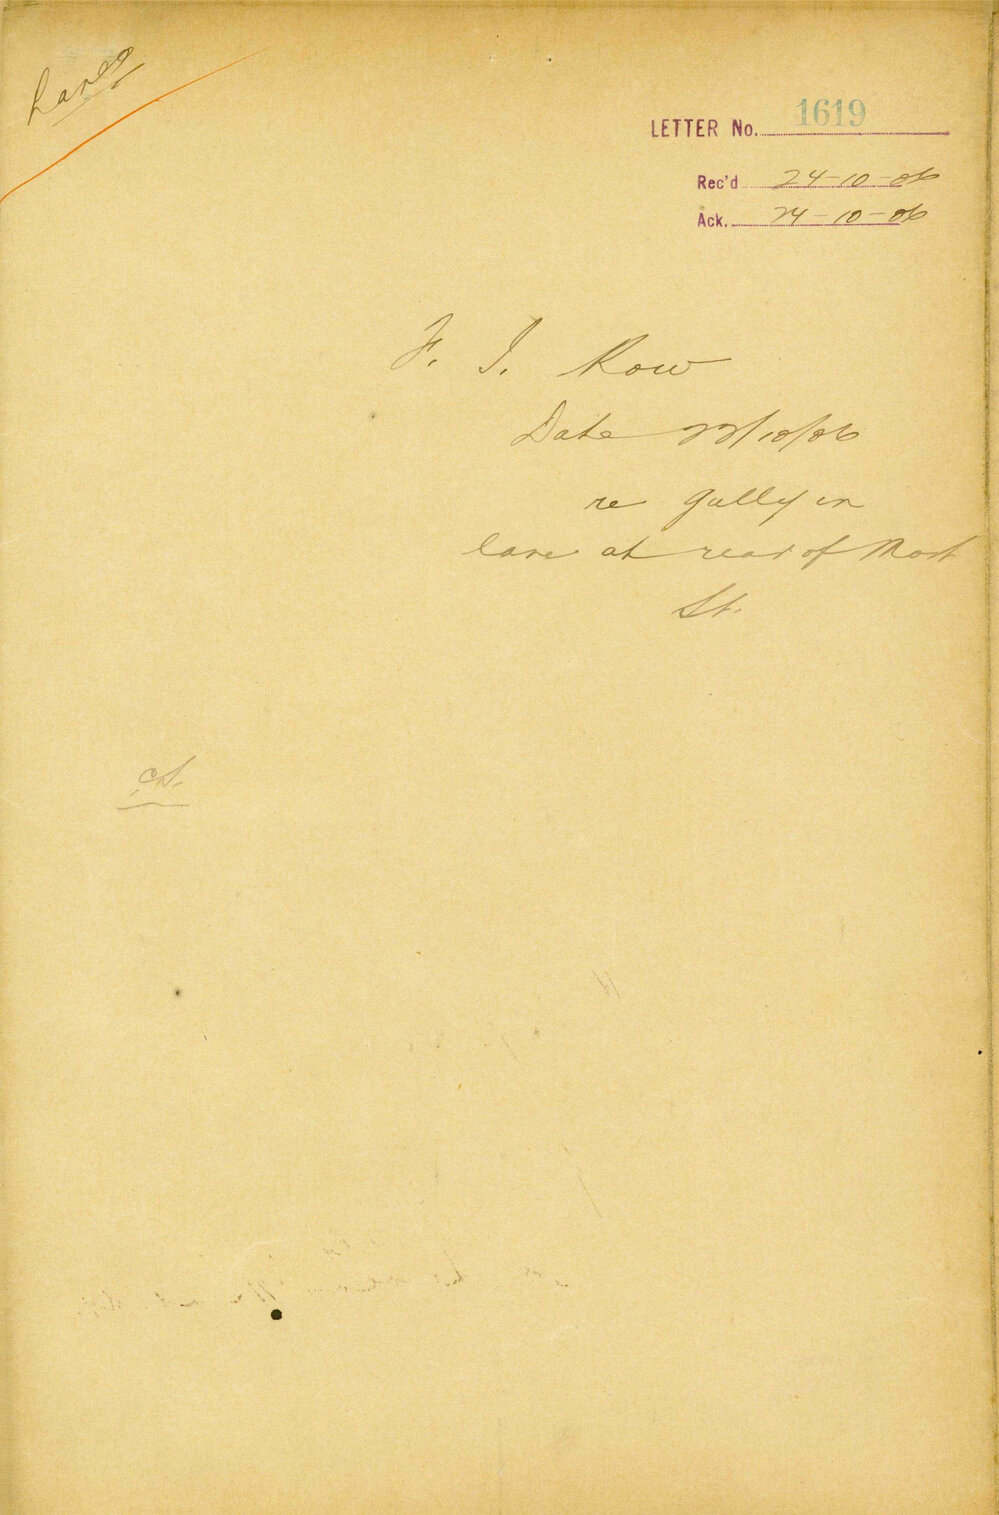 Lanes
LETTER No. 1619
Rec'd 24-10-06
Ack. 24-10-06
F. I. Row
Date 22/10/06
re Gully in
lane at rear of Mort
St.